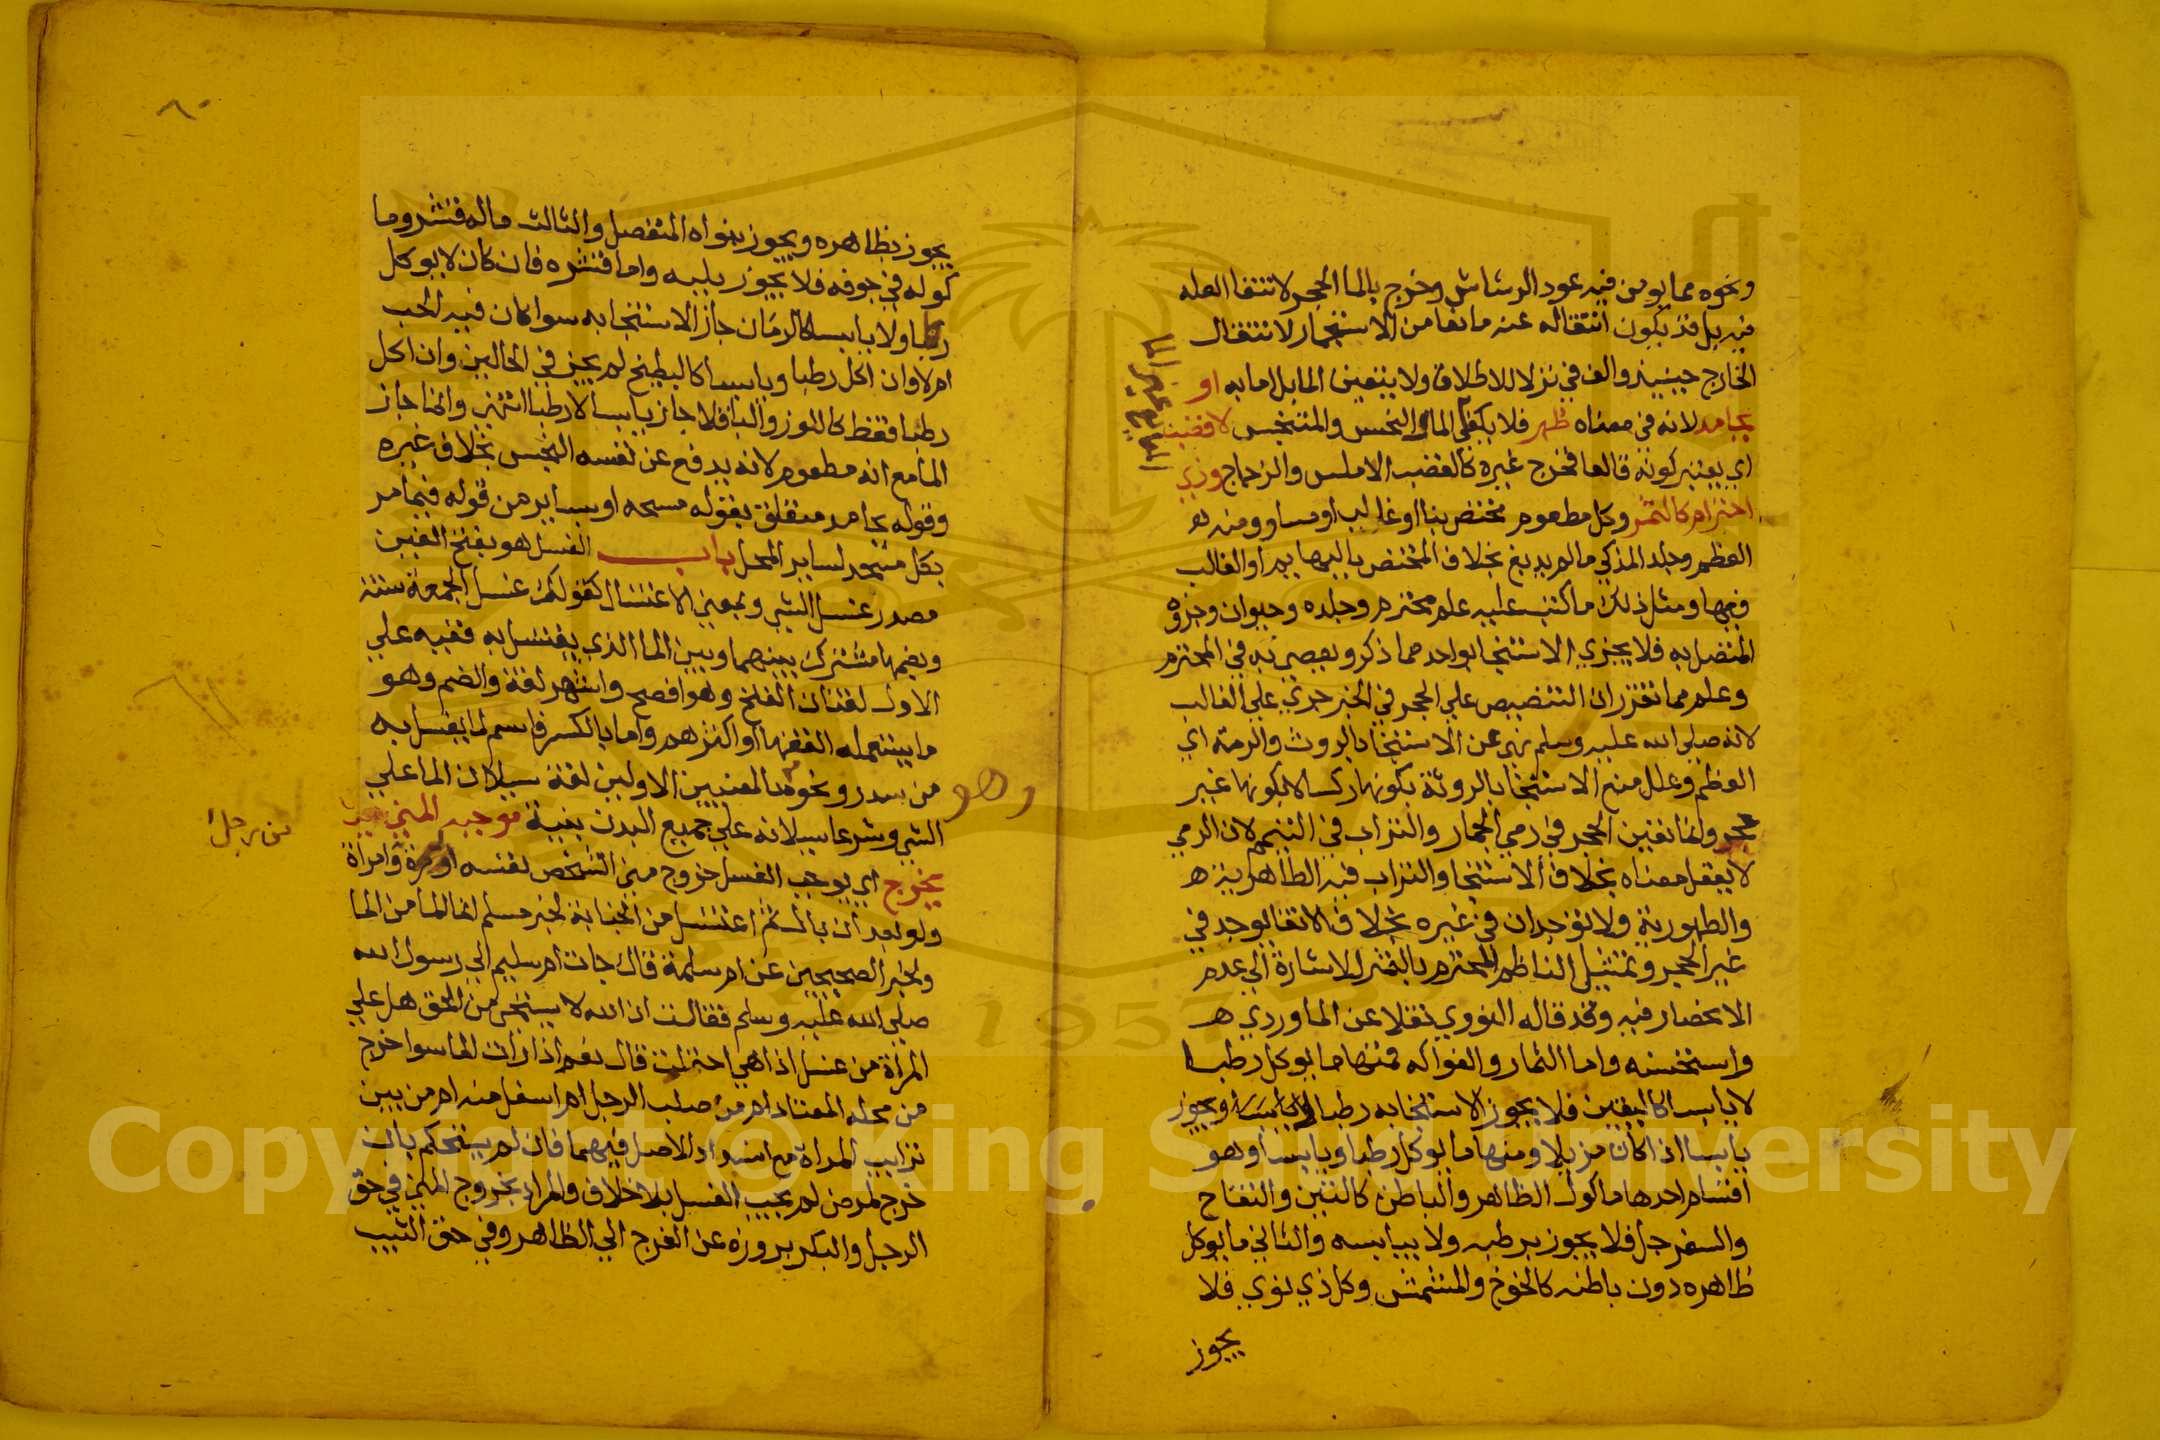 ونحوه مما يومن فيه عود الرشاش وخرج بالما الحجر لانتفا العله
فيه بل قد يكون انتقاله عنه مانعا من الاستنجمار لانتقال
الخارج حينيذ والف في نزلا للاطلاق ولا يتعين الما بل اما به او
بجامد لانه في معناه طهر فلا يكفي الما النجس والمتنجس لا قضبنا
اي يعتبر كونه قالعا فخرج غيره كالقصب الاملس والزجاج وذي
احترام كالثمر وكل مطعوم مختص بنا او غالب او مساو ومنه
العظم وجلد المذكي ما لم يدبغ بخلاف المختص بالبهايم او الغالب
فيها ومثل ذلك ما كتب عليه علم محترم وجلده وحيوان وجزوه
المتصل به فلا يجزي الاستنجا بواحد مما ذكر ويعصي به في المحترم
وعلم مما تقرر ان التنصيص علي الحجر في الخبر جري علي الغالب
لانه صلي الله عليه وسلم نهي عن الاستنجا بالروث والرمة اي
العظم وعلل منع الاستنجا بالروثة بكونها ركسا لا بكونها غير
حجر وانما تعين الحجر في رمي الجمار والتراب في التيمم لان الرمي
لا يعقل معناه بخلاف الاستنجا والتراب فيه الطاهرية
والطهورية ولا توجدان في غيره بخلاف الانقا يوجد في
غير الحجر وتمثيل الناظم المحترم بالثمر للاشارة الي عدم
الانحصار فيه وقد قاله النووي نقلا عن الماوردي
واستحسنه واما الثمار والفواكه فمنها ما يوكل رطبا
لا يابسا كاليقين فلا يجوز الاستنجا به رطبا ويجوز
يابسا اذا كان مزيلا ومنها ما يوكل رطبا ويابسا وهو
اقسام احدها ماكول الظاهر والباطن كالتين والتفاح
والسفرجل فلا يجوز برطبه ولا بيابسه والثاني ما يوكل
ظاهره دون باطنه كالخوخ والمشمش وكل ذي نوي فلا
يجوز
٨٠
يجوز بظاهره ويجوز بنواه المنفصل والثالث ما له قشر وما
كوله في جوفه فلا يجوز بلبه واما قشره فان كان لا يوكل
رطبا ولا يابسا كالرمان جاز الاستنجا به سوا كان فيه الحب
ام لا وان اكل رطبا ويابسا كالبطيخ لم يجز في الحالين وان اكل
رطبا فقط كاللوز والباقلا جاز يابسا لا رطبا انتهي وانما جاز
الما مع انه مطعوم لانه يدفع عن نفسه النجس بخلاف غيره
وقوله بجامد متعلق بقوله مسحه او بساير من قوله فيما مر
بكل مسحد لساير المحل باب الغسل هو بفتح الغين
مصدر غسل الشي وبمعني الاغتسال كقولك غسل الجمعة سنة
وبضمها مشترك بينهما وبين الما الذي يغتسل به ففيه علي
الاول لغتان الفتح وهو افصح واشهر لغة والضم وهو
ما يستعمله الفقها او اكثرهم واما بالكسر فاسم لما يغسل به
من سدر ونحوه وهو بالمعنيين الاولين لغة سيلان الما علي
الشي وشرعا سيلانه علي جميع البدن بنية موجبه المني حين
يخرج اي يوجب الغسل خروج مني الشخص نفسه اول مرة وامراة
من رجل
ولو بعد ان بال ثم اغتسل من الجنابة لخبر مسلم انما الما من الما
ولخبر الصحيحين عن ام سلمة قالت جات ام سليم الي رسول الله
صلي الله عليه وسلم فقالت ان الله لا يستحي من الحق هل علي
المراة من غسل اذا هي احتلمت قال نعم اذا رات الما سوا خرج
من محله المعتاد ام من صلب الرجل ام اسفل منه ام من بين
ترايب المراة مع انسداد الاصل فيهما فان لم يستحكم بان
خرج لمرض لم يجب الغسل بلا خلاف والمراد بخروج المني في حق
الرجل والبكر بروزه عن الفرج الي الظاهر وفي حق الثيب
1957
Copyright © King Saud University